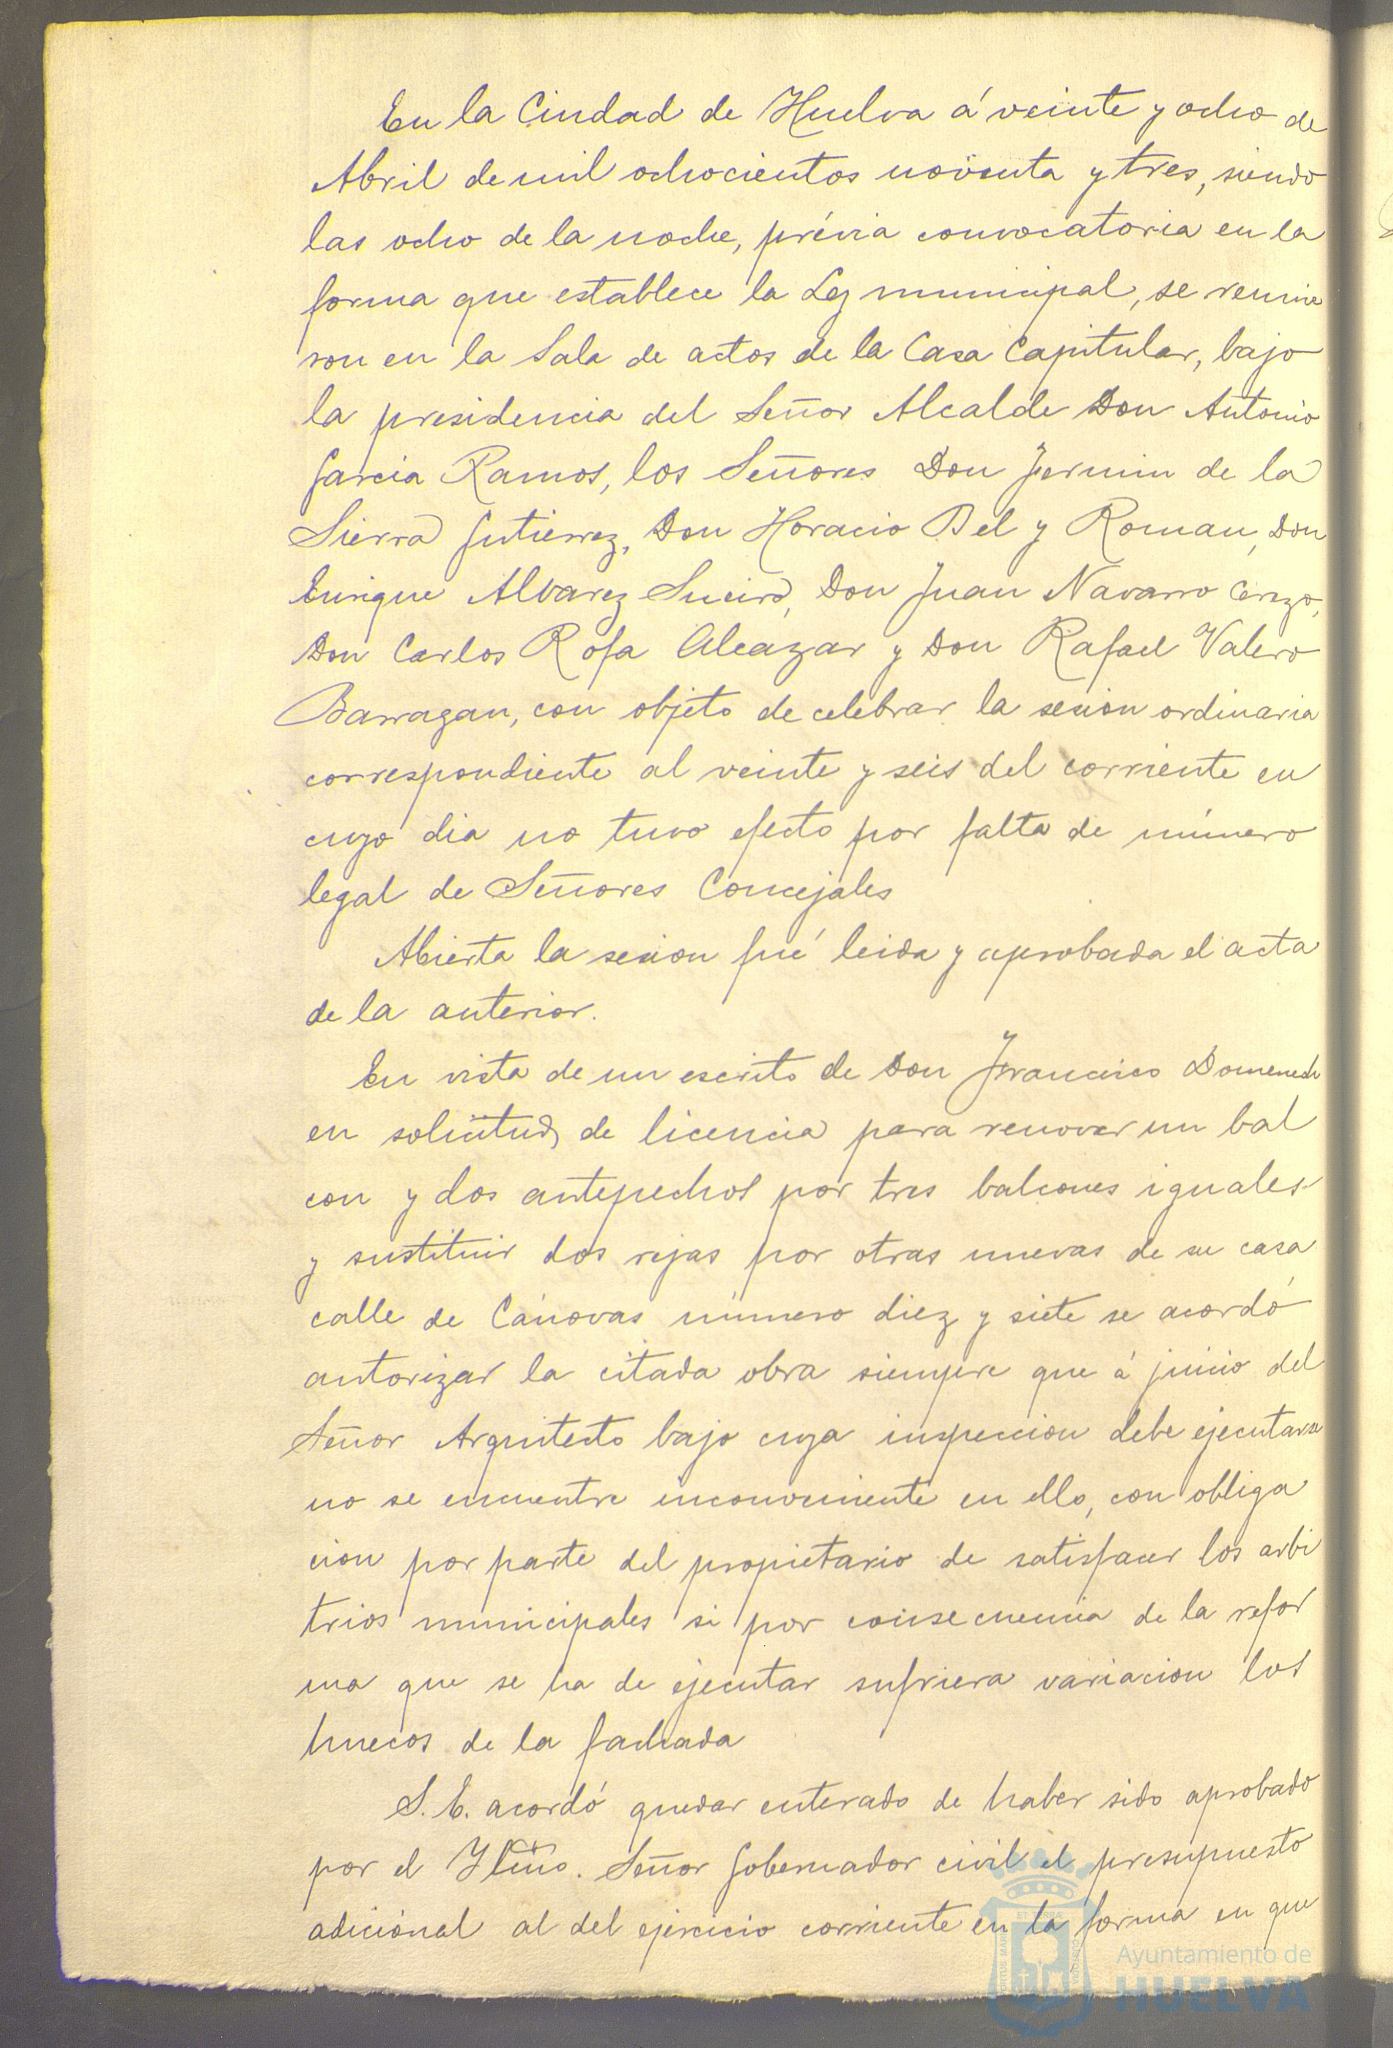 En la Ciudad de Huelva á veinte y ocho de
Abril de mil ochocientos noventa y tres, siendo
las ocho de la noche, prévia convocatoria en la
forma que establece la Ley municipal, se reunie
ron en la Sala de actos de la Casa Capitular, bajo
la presidencia del Señor Alcalde Don Antonio
Garcia Ramos, los Señores Don Fermin de la
Sierra Gutierrez, Don Horacio Bel y Roman, Don
Enrique Alvarez Sueiro, Don Juan Navarro Cerezo,
Don Carlos Rofa Alcazar y Don Rafael Valero
Barragan, con objeto de celebrar la sesion ordinaria
correspondiente al veinte y seis del corriente en
cuyo dia no tuvo efecto por falta de número
legal de Señores Concejales
Abierta la sesion fué leida y aprobada el acta
de la anterior.
En vista de un escrito de Don Francisco Domenech
en solicitud de licencia para renovar un bal
con y dos antepechos por tres balcones iguales
y sustituir dos rejas por otras nuevas de su casa
calle de Cánovas número diez y siete se acordó
autorizar la citada obra siempre que á juicio del
Señor Arquitecto bajo cuya inspeccion debe ejecutarse
no se encuentre inconveniente en ello, con obliga
cion por parte del propietario de satisfacer los arbi
trios municipales si por consecuencia de la refor
ma que se ha de ejecutar sufriera variacion los
huecos de la fachada
S. E. acordó quedar enterado de haber sido aprobado
por el Yltmo. Señor Gobernador civil el presupuesto
adicional al del ejercicio corriente en la forma en que
Ayuntamiento de
HUELVA